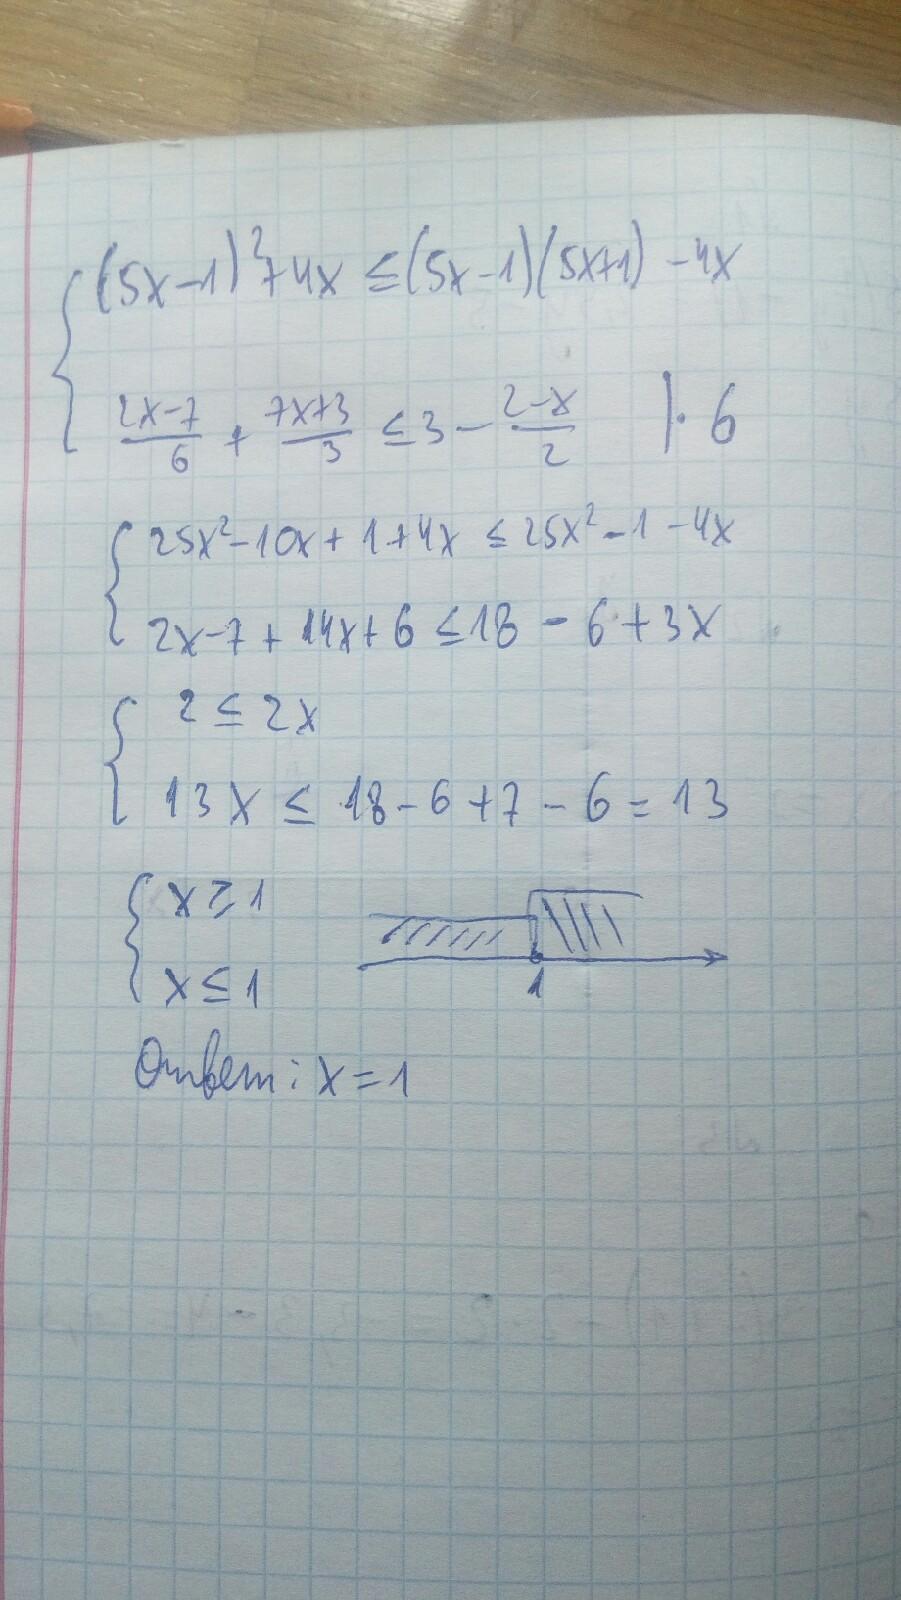 (5x-1)²+4x ≤ (5x-1)(5x+1) -4x
(2x-7)/6 + (7x+3)/3 ≤ 3 - (2-x)/2 |· 6
25x²-10x+1+4x ≤ 25x²-1-4x
2x-7+14x+6 ≤ 18 - 6 + 3x
2 ≤ 2x
13x ≤ 18-6+7-6 = 13
x ≥ 1
x ≤ 1
1
Ответ: x = 1